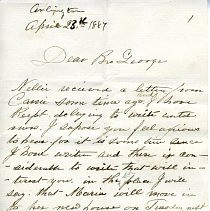 Arlington
April 23th 1887
1
Dear Bro George
Nellie received a letter from
Cassie some time ago and I have
kept delaying to write until
now. I supose you feel anxious
to hear for it is some time since
I have written and there is con-
siderable to write that will in-
terest you. in the first place I will
say that Maria will move in
to her new house on Tuesday next